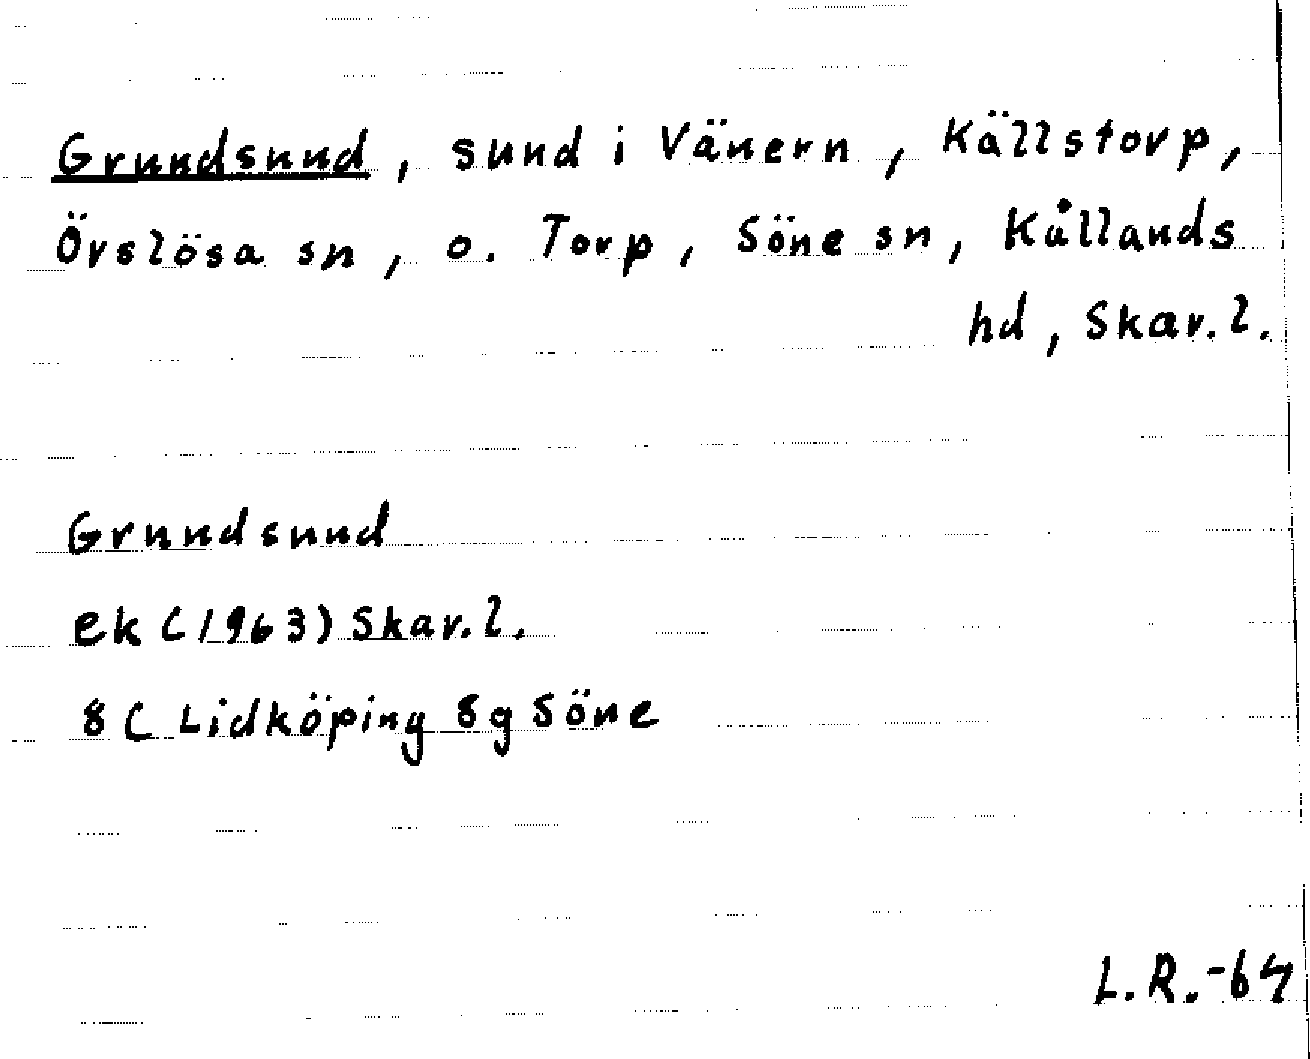 Grundsund, sund i Vänern, Källstorp,
Örslösa sn, o. Torp, Söne sn, Kållands
hd, Skar. l.
Grundsund
ek (1963) Skar. l.
8 C Lidköping 8 g Söne
L. R. -64